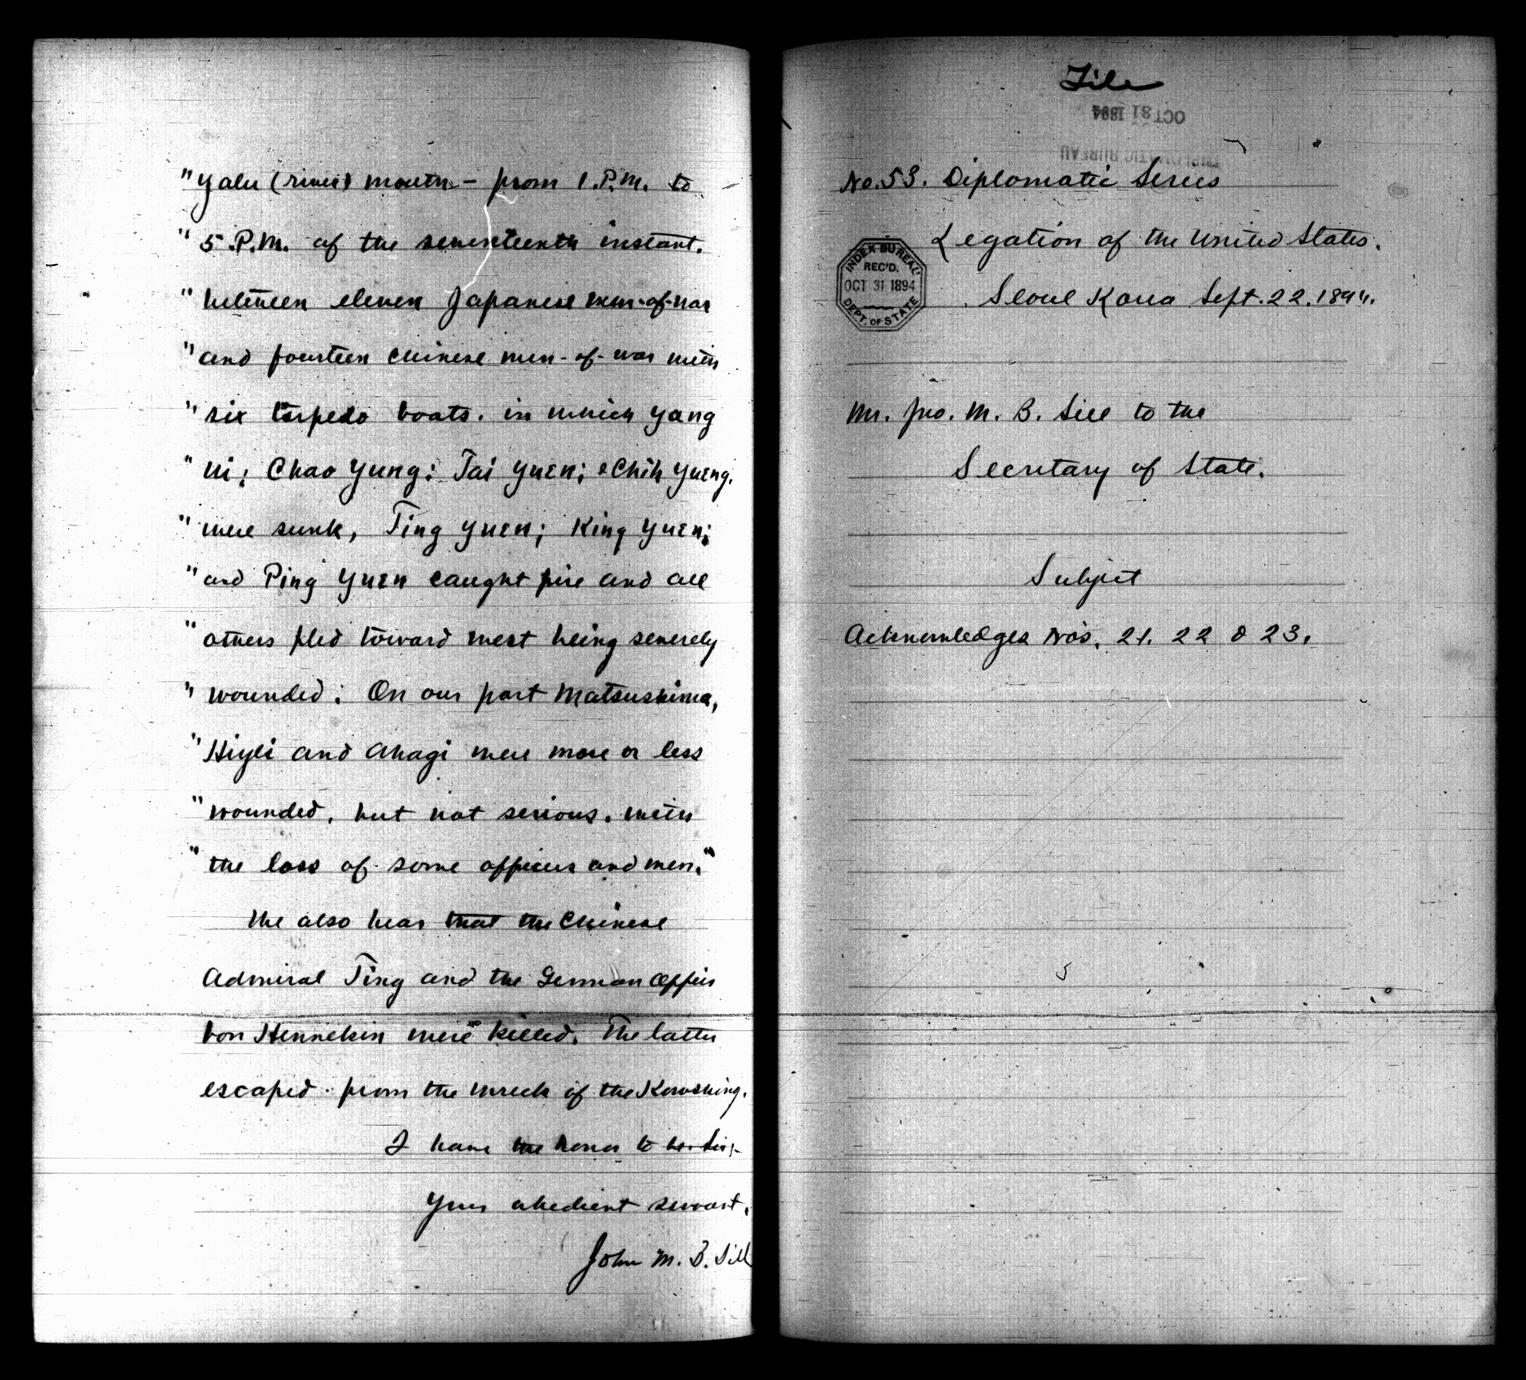 "Yalu (river) mouth – from 1.P.M. to
"5.P.M. of the seventeenth instant.
"between eleven Japanese men-of-war
"and fourteen Chinese men-of-war with
"six torpedo boats. in which Yang
"Wi; Chao Yung; Tai Yuen; & Chih Yueng.
"were sunk, Ting Yuen; King Yuen;
"and Ping Yuen caught fire and all
"others fled toward west being severely
"wounded; On our part Matsushima,
"Hiyei and Akagi were more or less
"wounded, but not serious. with
"the loss of some officers and men."
We also hear that the Chinese
Admiral Ting and the German Officer
von Hennekin were killed. The latter
escaped from the wreck of the Kowshing.
I have the honor to be Sir;-
Your obedient servant.
John M. B. Sill
File
OCT 31 1894
DIPLOMATIC BUREAU
No. 53. Diplomatic Series
Legation of the United States.
Seoul Korea Sept. 22. 1894.
INDEX BUREAU
REC'D.
OCT 31 1894
DEPT. OF STATE
Mr. Jno. M. B. Sill to the
Secretary of State.
Subject
Acknowledges Nos. 21. 22 & 23.